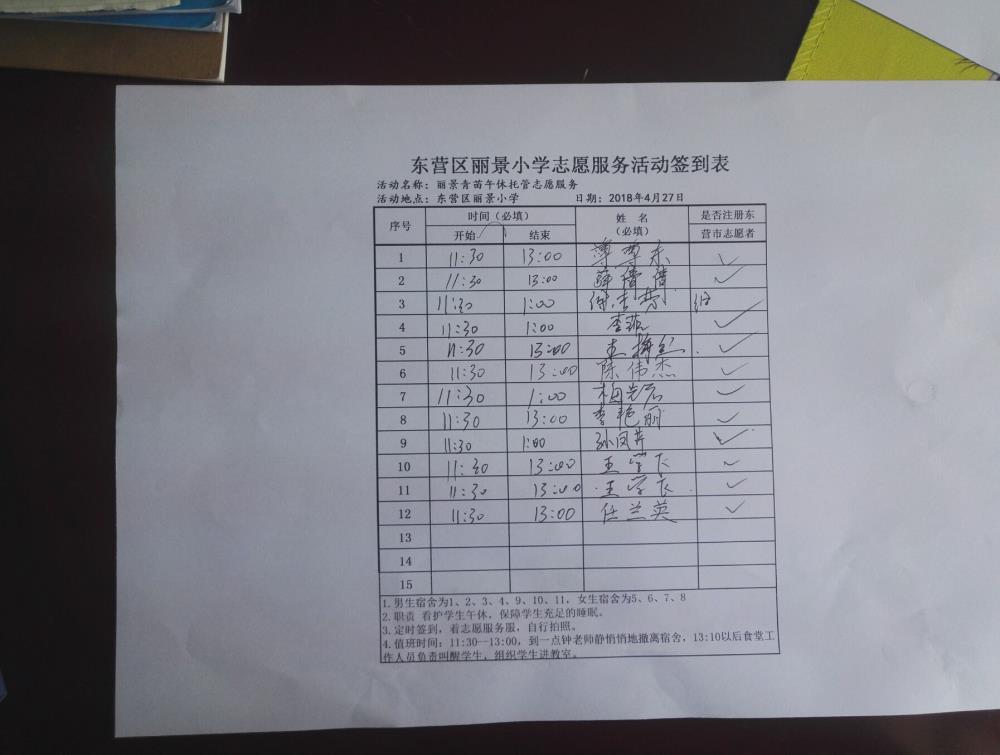 东营区丽景小学志愿服务活动签到表
活动名称：丽景青苗午休托管志愿服务
活动地点：东营区丽景小学 日期：2018年4月27日
序号 时间（必填） 姓名（必填） 是否注册东营市志愿者
开始 结束
1 11:30 13:00 ✓
2 11:30 13:00 薛倩倩 ✓
3 11:30 1:00
4 11:30 1:00 李菲 ✓
5 11:30 13:00 ✓
6 11:30 13:00 陈伟杰 ✓
7 11:30 1:00 ✓
8 11:30 13:00 李艳丽 ✓
9 11:30 1:00 孙凤芹 ✓
10 11:30 13:00 王学 ✓
11 11:30 13:00 王学 ✓
12 11:30 13:00 任兰英 ✓
13
14
15
1.男生宿舍为1、2、3、4、9、10、11，女生宿舍为5、6、7、8
2.职责 看护学生午休，保障学生充足的睡眠。
3.定时签到，着志愿服务服，自行拍照。
4.值班时间：11:30--13:00，到一点钟老师静悄悄地撤离宿舍，13:10以后食堂工
作人员负责叫醒学生，组织学生进教室。